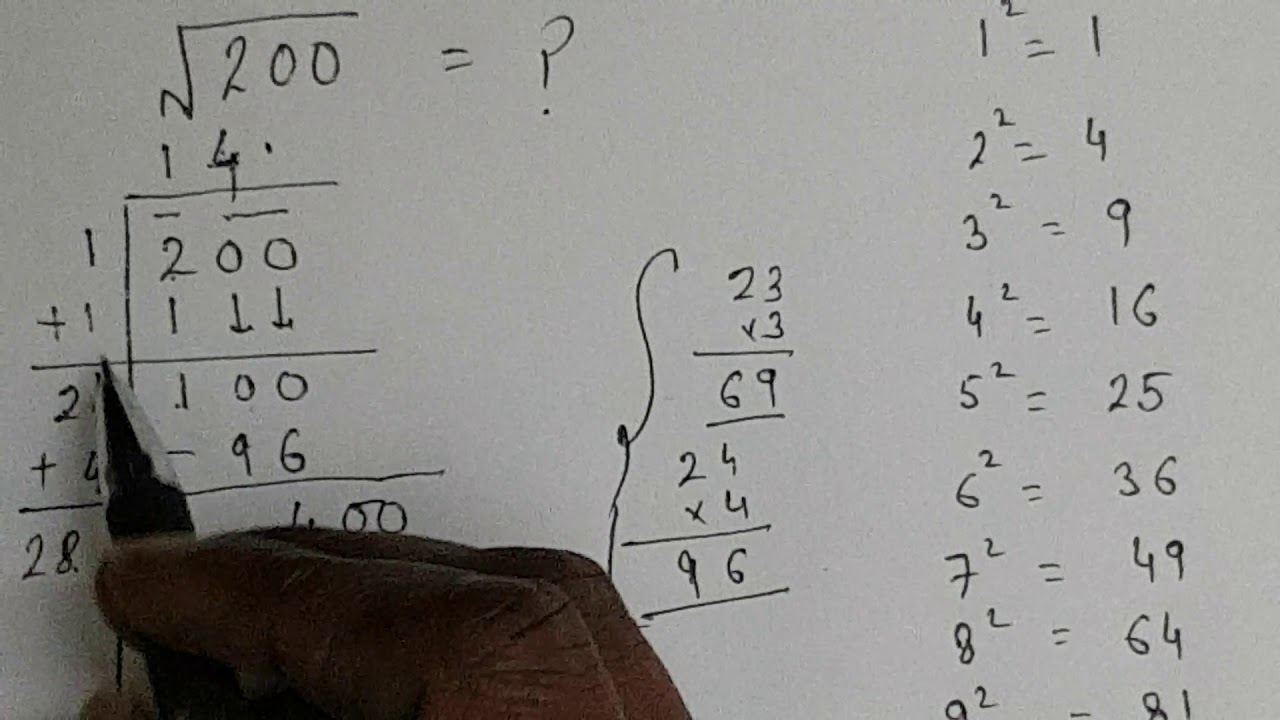 √200 = ?
1 4 .
1 | 2 0 0
+1 | 1 ↓ ↓
2 | 1 0 0
+ 4 | - 9 6
28 | 4 00
23
×3
69
24
×4
96
1² = 1
2² = 4
3² = 9
4² = 16
5² = 25
6² = 36
7² = 49
8² = 64
9² = 81